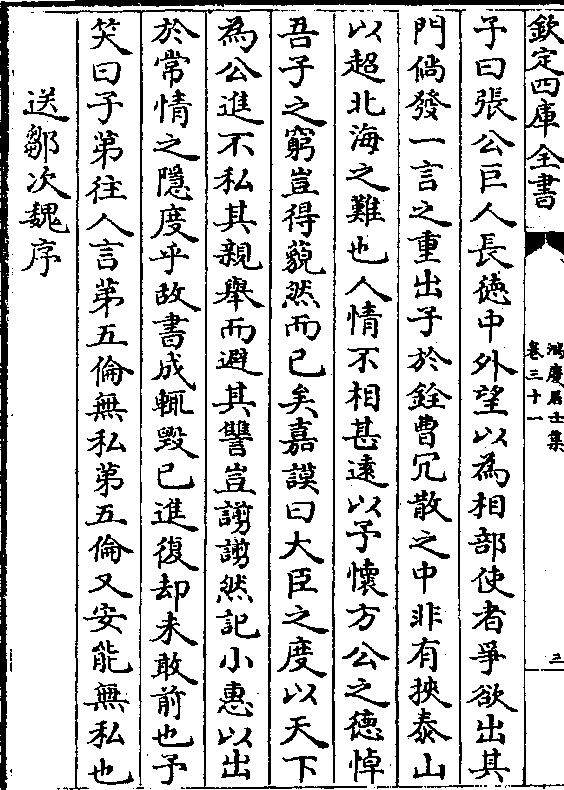 欽定四庫全書
鴻慶居士集
卷三十一
三
子曰張公巨人長德中外望以為相部使者爭欲出其
門倘發一言之重出子於銓曹冗散之中非有挾泰山
以超北海之難也人情不相甚遠以予懷方公之德悼
吾子之窮豈得藐然而已矣嘉謨曰大臣之度以天下
為公進不私其親舉而避其讐豈謭謭然記小惠以出
於常情之隱度乎故書成輒毀已進復却未敢前也予
笑曰子第往人言第五倫無私第五倫又安能無私也
送鄒次魏序